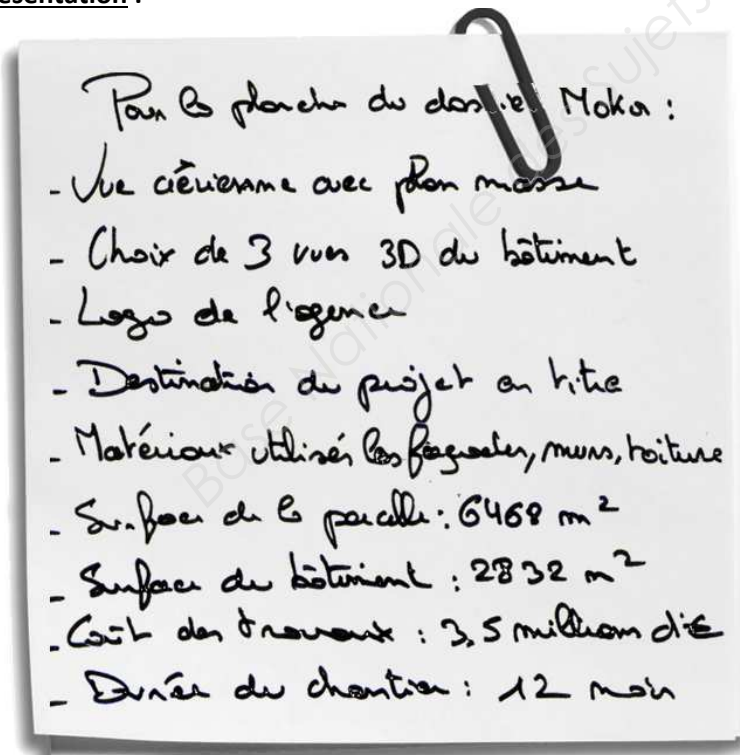 ésentation :
Pour la planche du dossier Moka :
- Vue aérienne avec plan masse
- Choix de 3 vues 3D du bâtiment
- Logo de l'agence
- Destination du projet en titre
- Matériaux utilisés façades, murs, toiture
- Surface de la parcelle : 6468 m²
- Surface du bâtiment : 2832 m²
- Coût des travaux : 3,5 millions d'€
- Durée du chantier : 12 mois
Base Nationale des Sujets